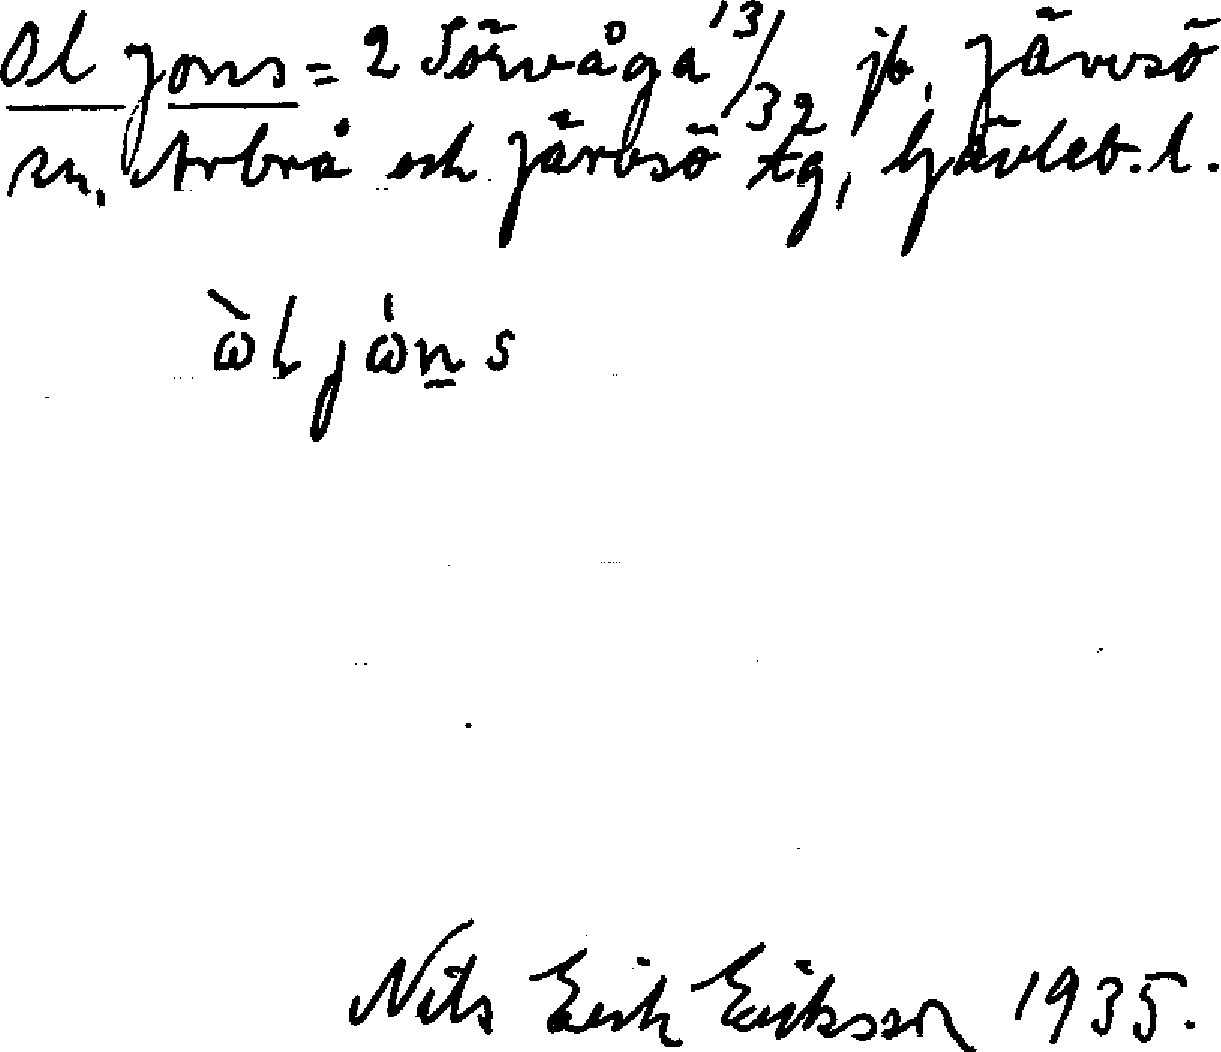 Ol Jons = 2 Sörvåga 13/32 jb, Järvsö
sn. Arbrå och Järvsö tg, Gävleb. l.
ὼl jώn̲s
Nils Erik Eriksson 1935.